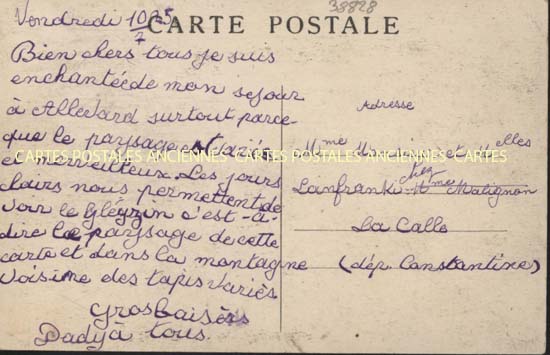 38828
CARTE POSTALE
Vendredi 10/7 25
Bien chers tous je suis
enchantée de mon sejour
à Allevard surtout parce
que le paysage est varié
et merveilleux. Les jours
clairs nous permettent de
voir le Gleyzin c'est-à-
dire le paysage de cette
carte et dans la montagne
voisine des tapis variés
Gros baisers
Dady à tous
Adresse
Mme et Melles
Lanfranki chez Mme Matignon
La Calle
(dép. Constantine)
CARTES POSTALES ANCIENNES CARTES POSTALES ANCIENNES CARTES POSTALES ANCIENNES